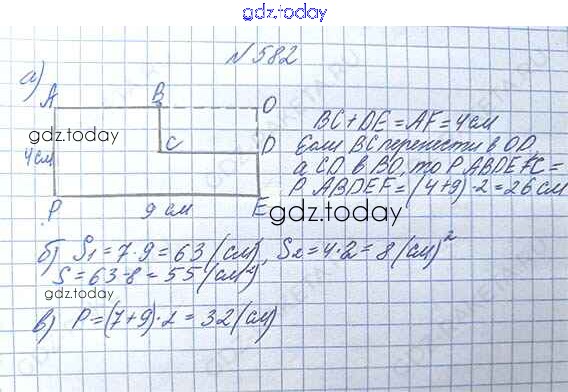 gdz.today
№ 582
а)
A B O
BC + DE = AF = 4 см
gdz.today C D Если BC перенести в OD,
4 см а CD в BO, то P ABDEFC =
P ABDEF = (4+9)·2 = 26 см
P 9 см E gdz.today
б) S₁ = 7·9 = 63 (см), S₂ = 4·2 = 8 (см)²
S = 63-8 = 55 (см²)
gdz.today
в) P = (7+9)·2 = 32 (см)